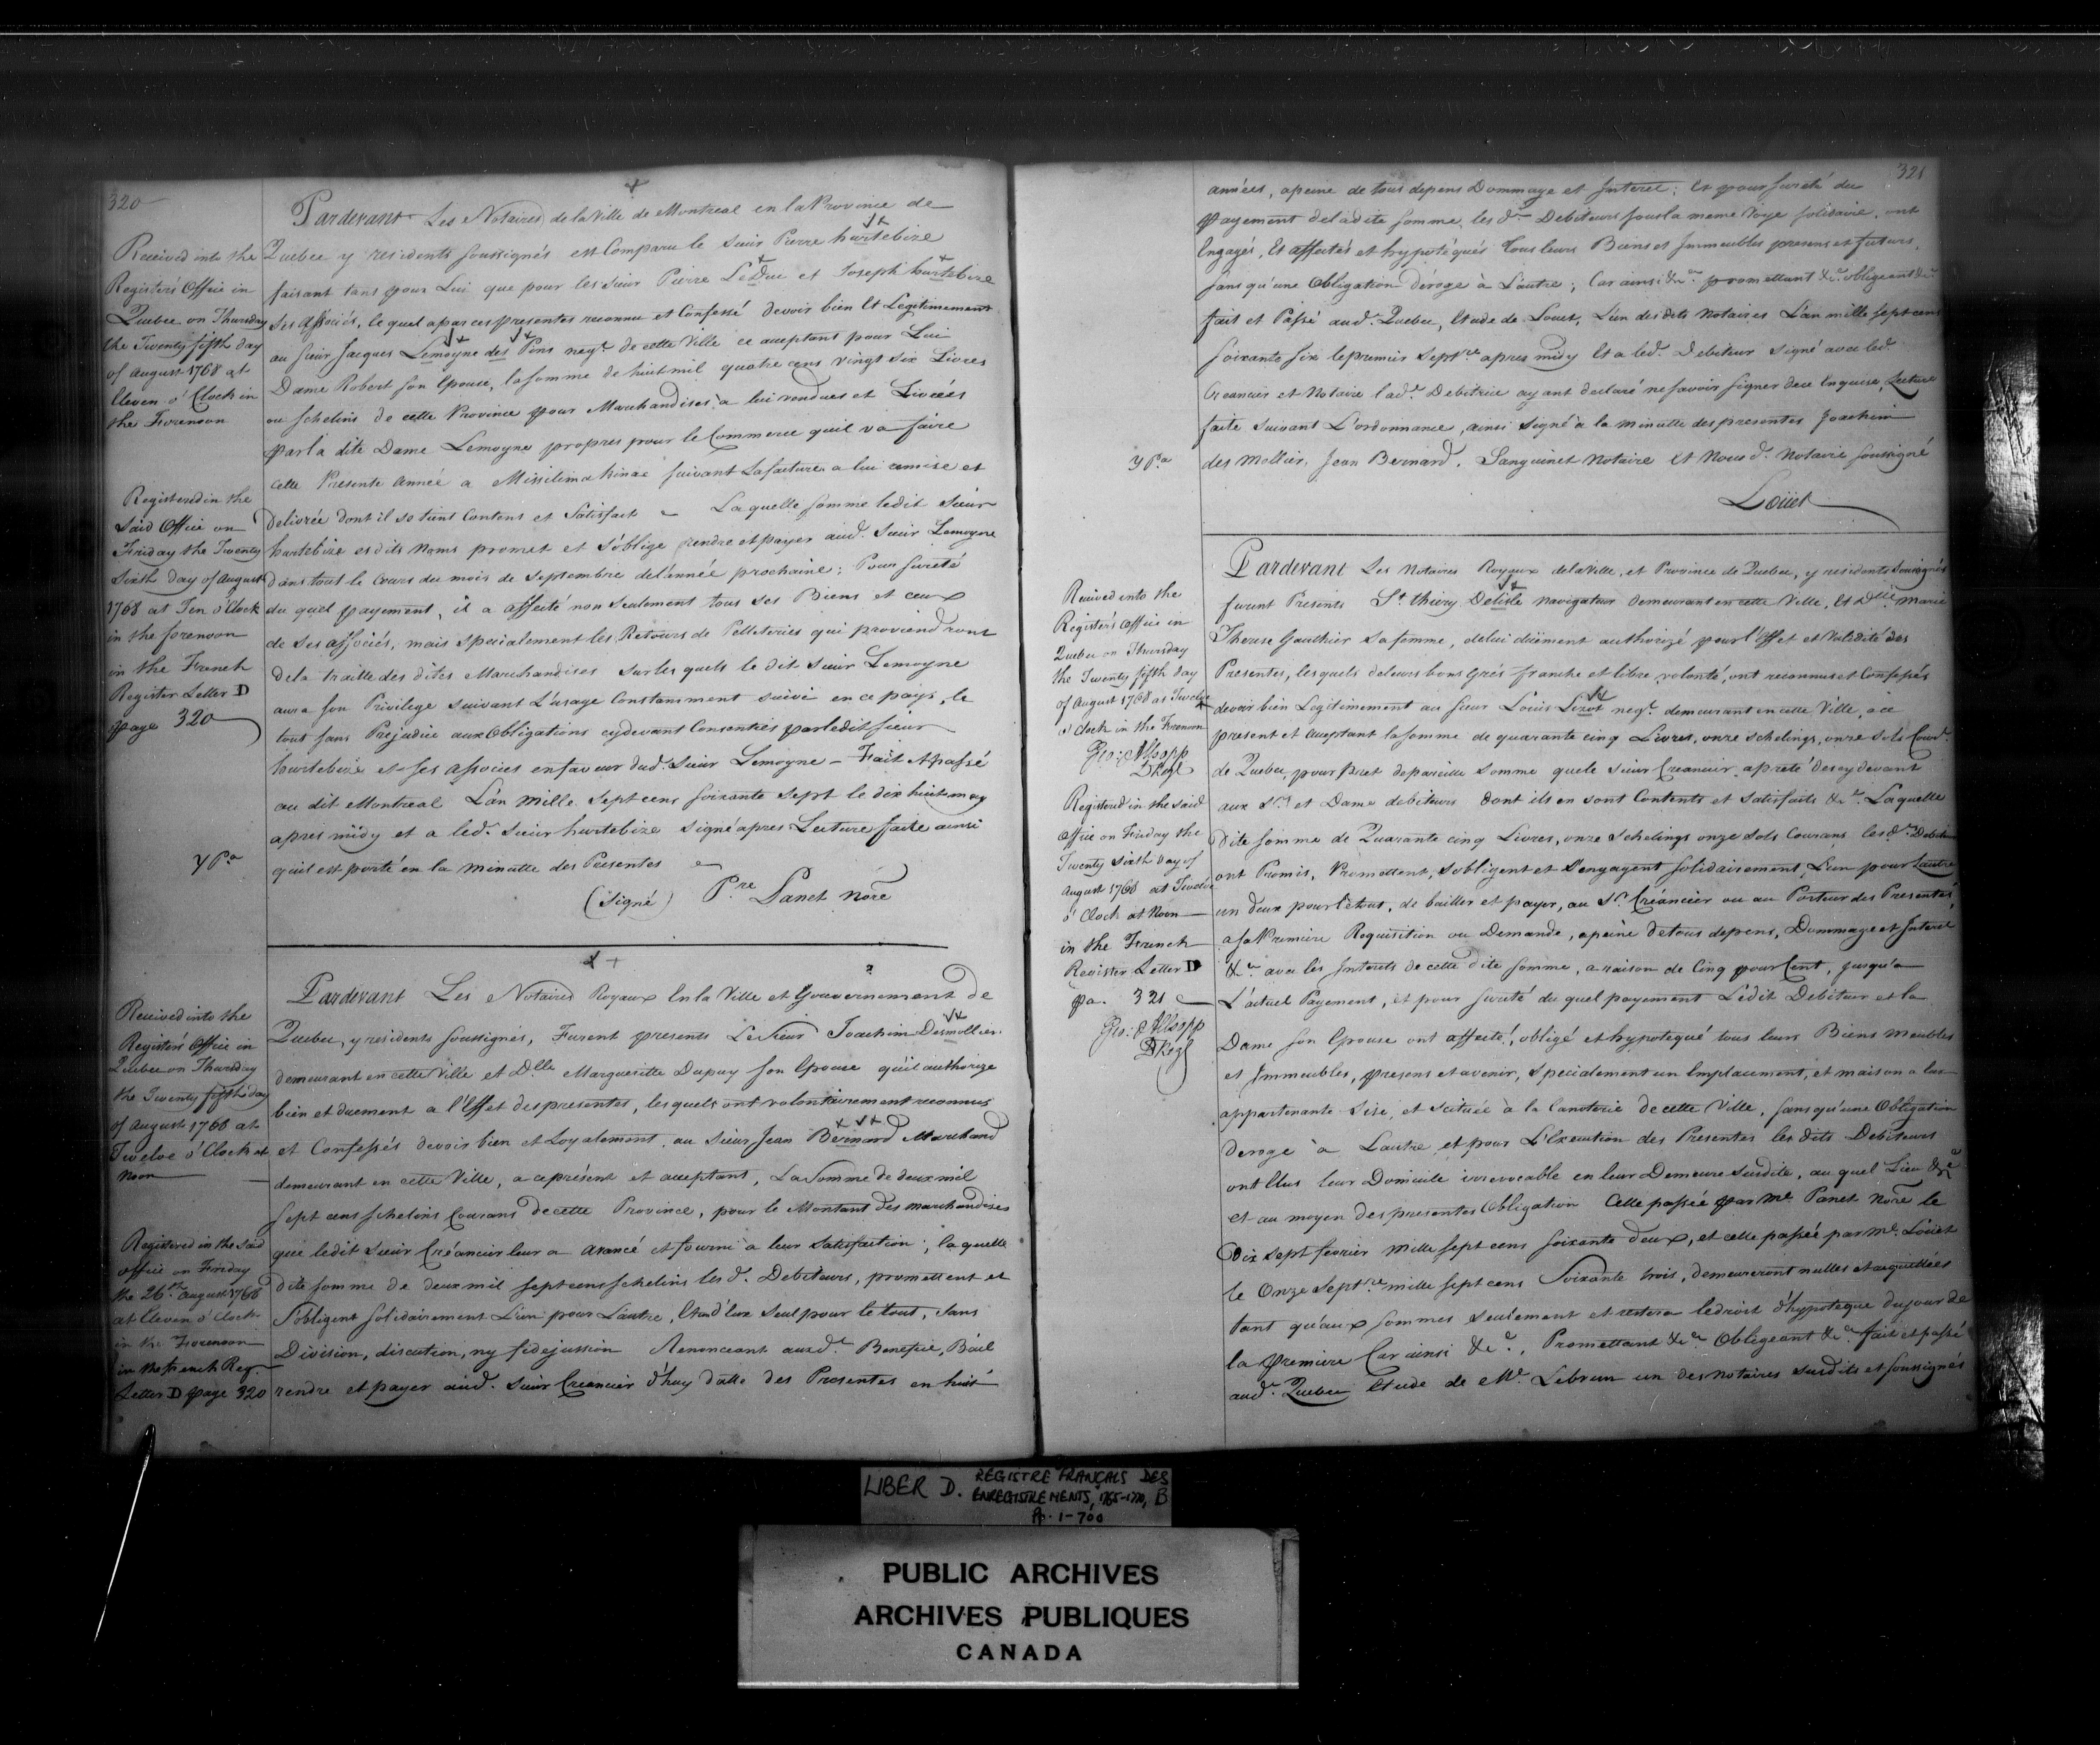 320
Received into the
Registers Office in
Quebec on Thursday
the Twenty fifth day
of August 1768 at
Eleven o'Clock in
the Forenoon
Registered in the
Said Office on
Friday the Twenty
Sixth day of August
1768 at Ten o'Clock
in the forenoon
in the French
Register Letter D
page 320
Pardevant Les Notaires de la Ville de Montreal en la Province de
Quebec y residents soussignés est Comparu le Sieur Pierre hurtebize
faisant tans pour Lui que pour les Sieur Pierre LeDuc et Joseph hurtebize
Ses Associés, le quel a par ces presentes reconnu et Confessé devoir bien Et Legitimement
au Sieur Jacques Lemoyne des Pins negt. de cette Ville ce acceptant pour Lui
Dame Robert son Epouse, la somme de huit mil quatre cens vingt six Livres
ou Schelins de cette Province pour Marchandises a lui vendues et Livrées
par la dite Dame Lemoyne propres pour le Commerce quil va faire
cette Presente Année a Missilimakinac suivant La facture a lui remise et
delivrée dont il se tient Content et Satisfait ~ Laquelle somme ledit Sieur
hurtebize esdits Noms promet et s'oblige rendre et payer aud. Sieur Lemoyne
dans tout le Cours du mois de Septembre de l'année prochaine; Pour sureté
du quel payement, il a affecté non seulement tous ses Biens et ceux
de Ses associés, mais specialement les Retours de Pelleteries qui proviendront
de la traitte des dites Marchandises sur les quels le dit Sieur Lemoyne
aura son Privilege suivant L'usage Constamment suivi en ce pays, le
tout sans Prejudice aux Obligations cydevant Consenties par ledit Sieur
hurtebize et ses Associés en faveur dud. Sieur Lemoyne – Fait et passé
au dit Montreal L'an Mille Sept cens soixante Sept le dix huit may
apres midy et a led. Sieur hurtebize signé apres Lecture faite ainsi
y Pa
quil est porté en la minutte des Presentes
(Signé) Pre. Panet Nore
Received into the
Registers Office in
Quebec on Thursday
the Twenty fifth day
of August 1768 at
Twelve o'Clock at
Noon
Registered in the Said
office on Friday
the 26th. August 1768
at Eleven o'Clock
in the Forenoon
in the French Reg.
Letter D page 320
Pardevant Les Notaires Royaux En la Ville et Gouvernement de
Quebec, y residents soussignés, Furent presents Le Sieur Joachim Desmollier
demeurant en cette Ville et Dlle Margueritte Dupuy son Epouse qu'il authorize
bien et duement a l'Effet des presentes, lesquels ont volontairement reconnus
et Confessés devoir bien et Loyalement au Sieur Jean Bernard Marchand
demeurant en cette Ville, a ce présent et acceptant, La Somme de deux mil
sept cens schelins Courans de cette Province, pour le Montant des marchandises
que ledit Sieur Créancier leur a avancé et fourni a leur Satisfaction; la quelle
dite somme de deux mil sept cens schelins les d. Debiteurs, promettent et
s'obligent solidairement L'un pour Lautre, Et un d'eux seul pour le tout, sans
Division, discution, ny fidejussion Renonceant auxd. Benefice, Bail
rendre et payer aud. Sieur Creancier d'huy datte des Presentes en huit
321
années, apeine de tous depens Dommage et Interet; Et pour sureté du
payement de la dite somme, les d. Debiteurs sous la meme Voye solidaire, ont
Engagés, Et affectés et hypotéqués tous leurs Biens et Immeubles presens et futurs,
sans qu'une Obligation déroge à L'autre; Car ainsi &a. promettant &a. obligeant &a.
fait et Passé aud. Quebec, Etude de Louet, L'un des dits Notaires L'an mille Sept cens
soixante six le premier Septre apres midy Et a led. Debiteur signé avec led.
Creancier et Notaire lad. Debitrice ayant declaré ne savoir signer de ce Enquise, Lecture
faite suivant L'ordonnance, ainsi Signé a la minutte des presentes Joachim
y Pa
des Mollier, Jean Bernard. Sanguinet Notaire Et Nousd. Notaire soussigné
Loüet
Received into the
Registers Office in
Quebec on Thursday
the Twenty fifth day
of August 1768 at Twelve
o'Clock in the Forenoon
Geo: Allsopp
D Regr
Registered in the said
Office on Friday the
Twenty Sixth Day of
August 1768 at Twelve
o'Clock at Noon
in the French
Register Letter D
pa. 321
Geo: Allsopp
D Regr
Pardevant Les Notaires Royaux de la Ville, et Province de Quebec, y residents soussignés
furent Presents St. thiery Delisle Navigateur demeurant en cette Ville, Et Dlle Marie
Therese Gauthier Sa femme, de lui duëment authorizé pour l'Effet et Validité des
Presentes, lesquels de leurs bons Grés franche et libre volonté, ont reconnus et Confessés
devoir bien Legitimement au Sieur Louis Lizot negt. demeurant en cette Ville, a ce
present et acceptant la somme de quarante cinq Livres, onze schelings, onze sols Cour.
de Quebec, pour Pret de pareille Somme que le Sieur Creancier a preté des cy devant
aux Srs et Dame debiteurs dont ils en sont Contents et Satisfaits &a. Laquelle
Dite somme de Quarante cinq Livres, onze Schelings onze Sols Courans les d. Debiteurs
ont Promis, Promettent, s'obligent et s'engagent solidairement, L'un pour L'autre
un deux pour le tout, de bailler et payer, au Sr. Créancier ou au Porteur des Presentes,
a sa Premiere Requisition ou Demande, a peine de tous depens, Dommage et Interet
&a. avec les Interets de cette dite somme, a raison de Cinq pour Cent, jusqu'a
L'actuel Payement, et pour sureté du quel payement Ledit Debiteur et la
Dame son Epouse ont affecté, obligé et hypotequé tous leurs Biens Meubles
et Immeubles, presens et avenir, Specialement un Emplacement, et maison a lui
appartenante Sise, et scituée à la Canoterie de cette Ville, sans qu'une Obligation
deroge à Lautre et pour L'Execution des Presentes les dits Debiteurs
ont Elus leur Domicile irrevocable en leur Demeure Susdite, au quel Lieu &a
Et au moyen des presentes Obligation Celle passée par Me. Panet Nore le
Dix sept fevrier Mille sept cens soixante deux, et celle passée par Me. Loüet
le Onze Septre mille sept cens Soixante trois, demeureront nulles et acquittées
tant qu'aux sommes seulement et restera le droit d'hypoteque du jour de
la premiere Car ainsi &a., Promettant &a. Obligeant &a. fait et passé
aud. Quebec Etude de Me. Lebrun un des Notaires susdits et soussignés
LIBER D. REGISTRE FRANÇAIS DES
ENREGISTREMENTS, 1765-1770, B
Pp. 1-700
PUBLIC ARCHIVES
ARCHIVES PUBLIQUES
CANADA